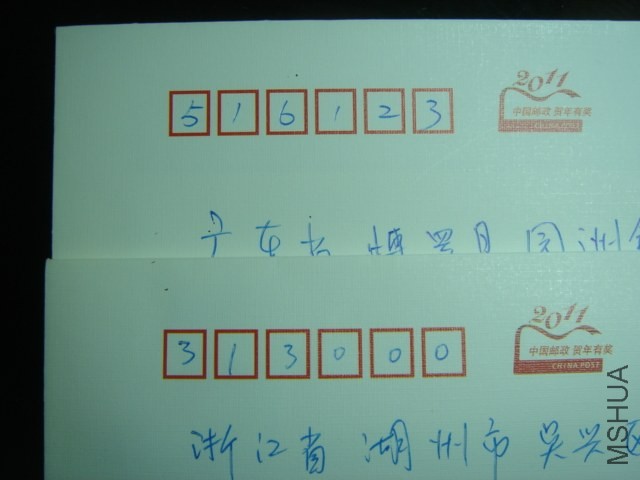 516123
2011
中国邮政 贺年有奖
CHINA POST
广东省 博罗县 园洲
313000
2011
中国邮政 贺年有奖
CHINA POST
浙江省 湖州市 吴兴区
MSHUA